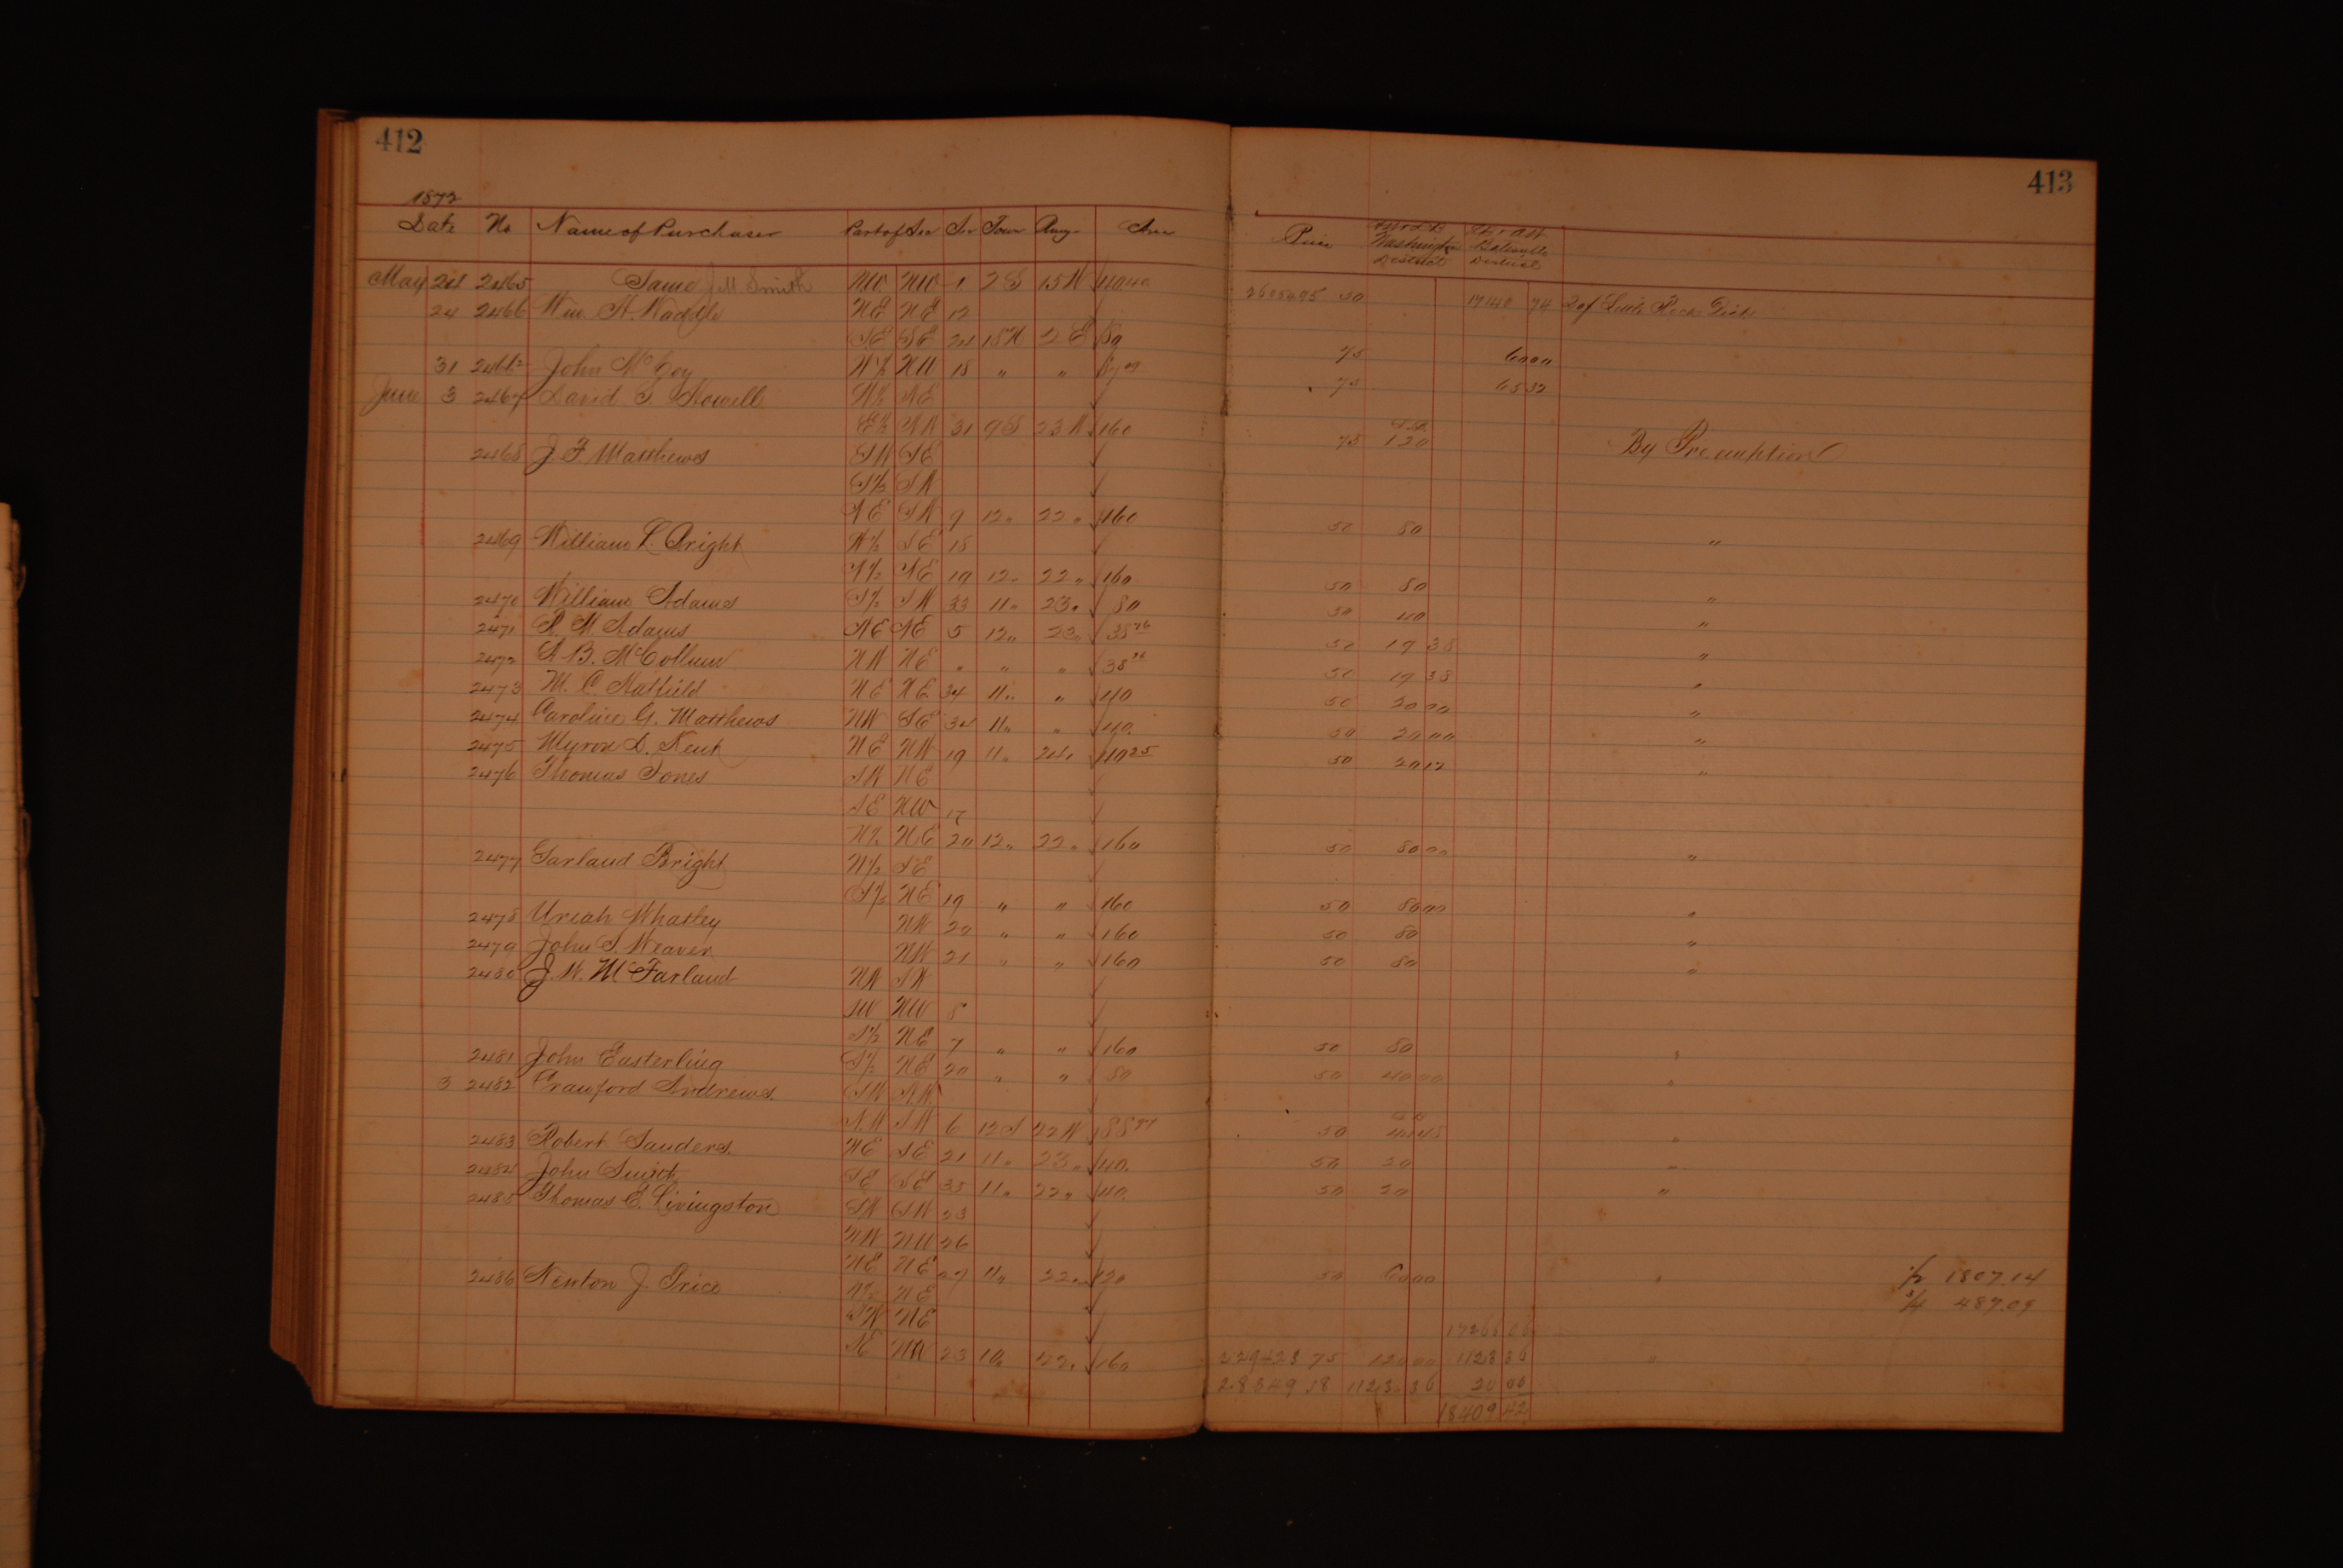 412
1872
Date No Name of Purchaser Part of Sec Sec Town Rang. Area
May 24 2465 Same J. M. Smith N.W. NW 1 2 S 15 W 40.40
24 2466 Wm. H. Waddle NE NE 12
SE SE 24 18 N 2 E 80
31 2466½ John McCoy W½ NW 18 " " 87 09
June 3 2467 David S. Howell W½ NE
E½ NW 31 9 S 23 W 160
2468 J. F. Matthews SW SE
S½ SW
NE SW 9 12 " 22 " 160
2469 William L. Bright W½ SE 18
N½ NE 19 12 " 22 " 160
2470 William Adams S½ SW 33 11 " 23 " 80
2471 Adams NE NE 5 12 " 23 " 38 76
2472 B. McCollum NW NE " " " 38 76
2473 M. C. Hatfield NE NE 34 11 " " 40
2474 Caroline G. Matthews NW SE 34 11 " " 40
2475 Myron D. Kent NE NW 19 11 " 24 " 40 25
2476 Thomas Jones SW NE
SE NW 17
N½ NE 20 12 " 22 " 160
2477 Garland Bright N½ SE
S½ NE 19 " " 160
2478 Uriah Whatley NW 20 " " 160
2479 John S. Weaver NW 21 " " 160
2480 J. W. McFarland NW SW
SW NW 8
S½ NE 7 " " 160
2481 John Easterling S½ NE 20 " " 80
3 2482 Crawford Andrews. SW NW
NW SW 6 12 S 22 W 88 97
2483 Robert Sanders. NE SE 21 11 " 23 " 40.
2484 John Smith SE SE 33 11 " 22 " 40.
2485 Thomas E. Livingston SW SW 23
NW NW 26
NE NE 27 11 " 22 " 120
2486 Newton J. Price N½ NE
SW NE
SE NW 23 10 " 22 " 160
413
Price Washington District Batesville District
50 17140 74 2 of Little Rock Dist
75 60 00
75 65 32
75 120 By Preemption
50 80 "
50 80 "
50 40 "
50 19 38 "
50 19 38 "
50 20 00 "
50 20 00 "
50 20 12 "
50 80 00 "
50 80 00 "
50 80 "
50 80 "
50 80 "
50 40 00 "
50 44 48 "
50 20 "
50 20 "
50 60 00 "
½ 1807.14
¾ 487.09
17266 06
75 120 00 1123 36 "
1123 36 20 00
18409 42